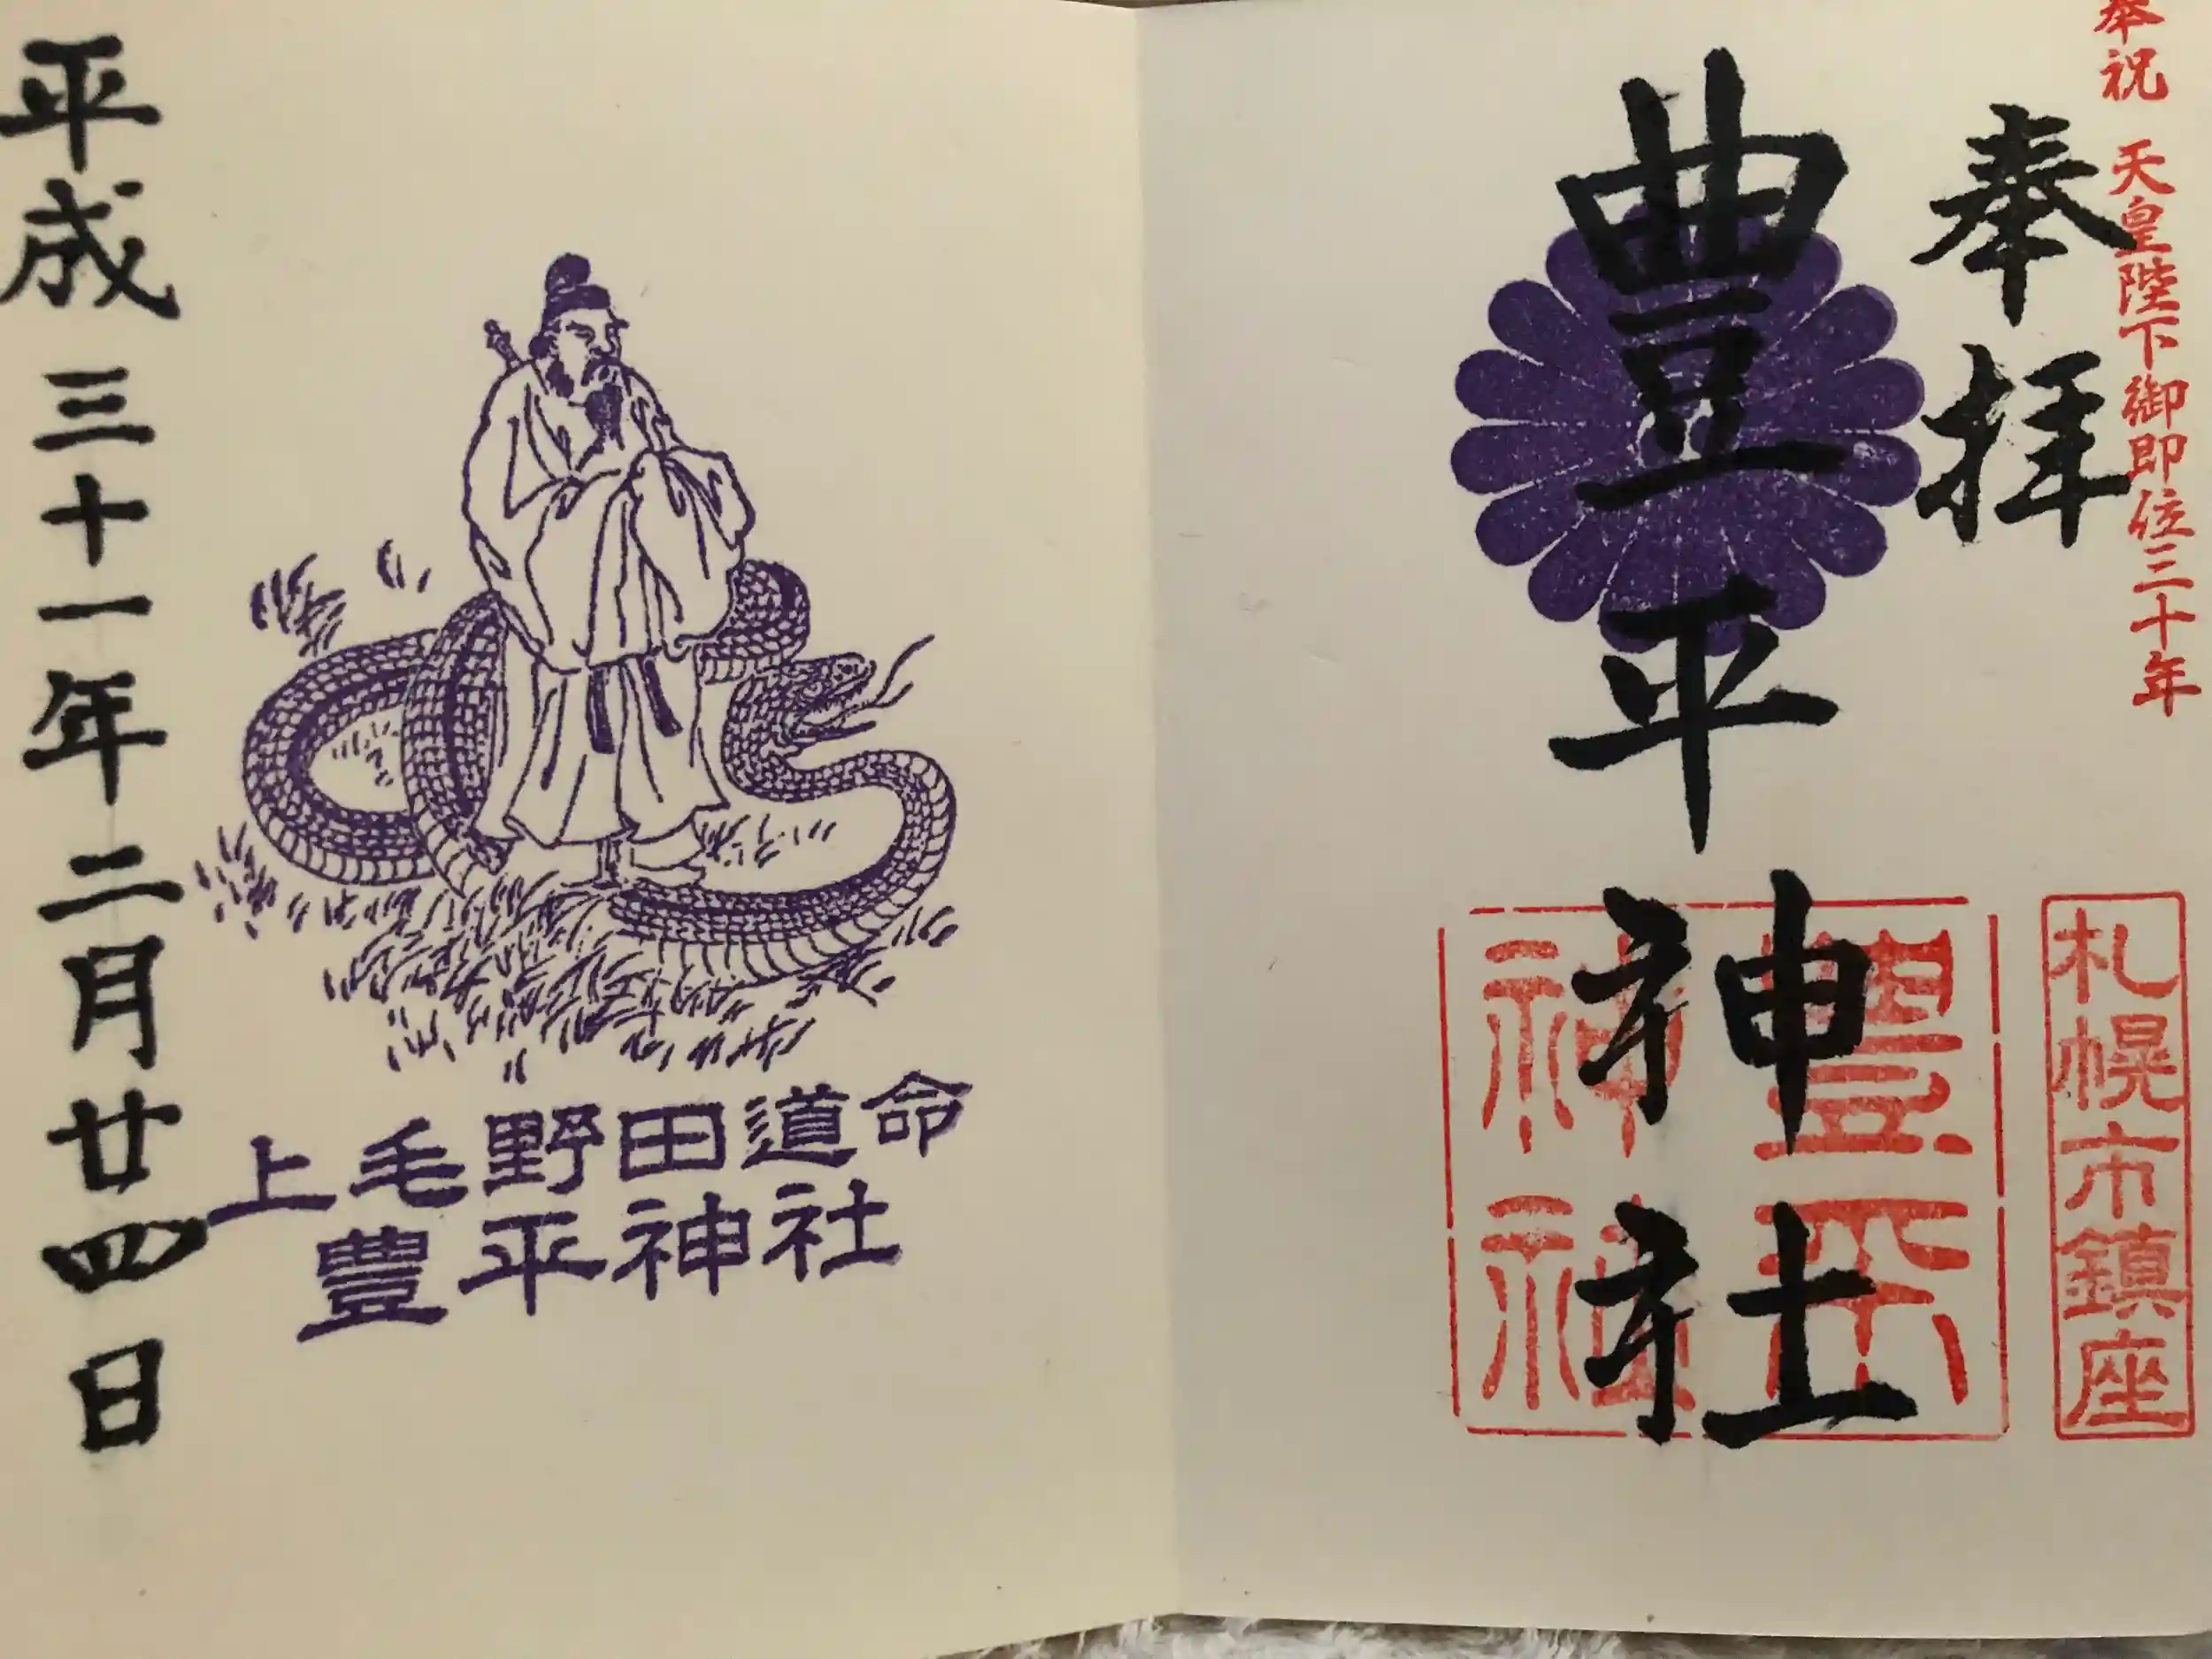 奉祝 天皇陛下御即位三十年
奉拝
札幌市鎮座
豊平神社
豊平
神社
上毛野田道命
豊平神社
平成三十一年二月廿四日